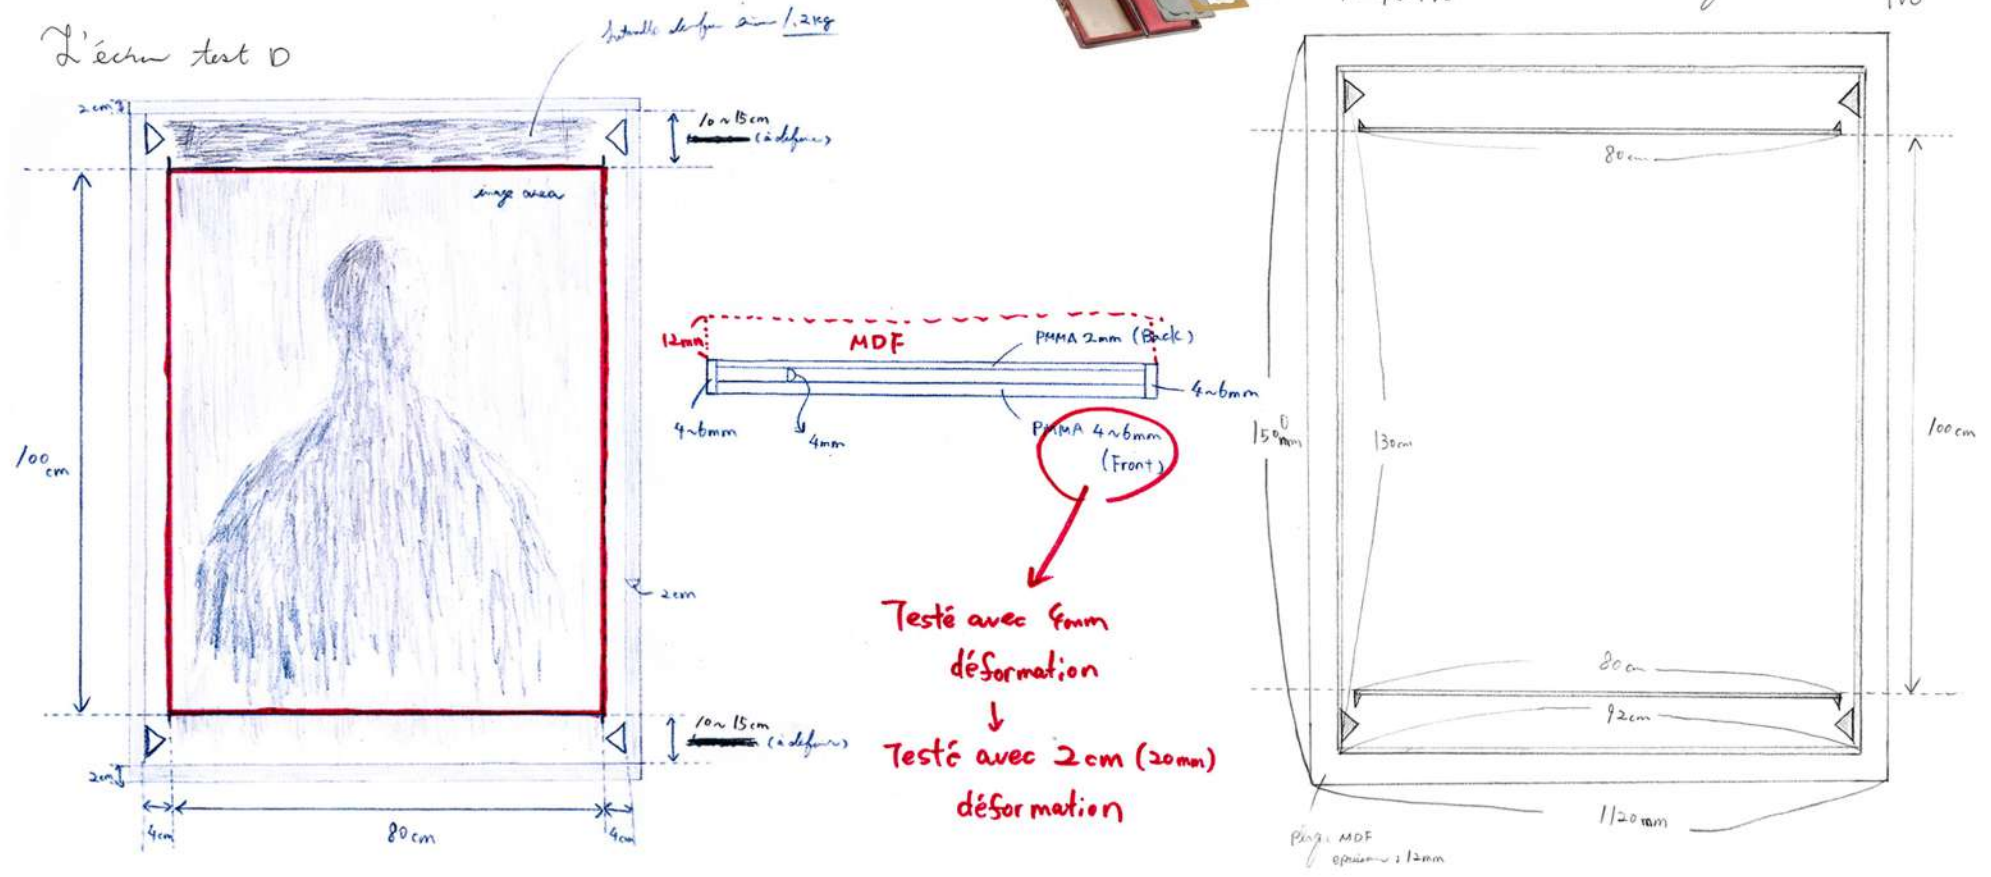 L'écran test D
1.2kg
2cm
10~15cm
(à définir)
image area
100
cm
2cm
10~15cm
(à définir)
2cm
4cm
80cm
4cm
12mm
MDF
PMMA 2mm (Back)
4~6mm
4~6mm
4mm
PMMA 4~6mm
(Front)
Testé avec 4mm
déformation
Testé avec 2cm (20mm)
déformation
80cm
1500mm
130cm
100cm
80cm
92cm
1120mm
MDF
: 12mm